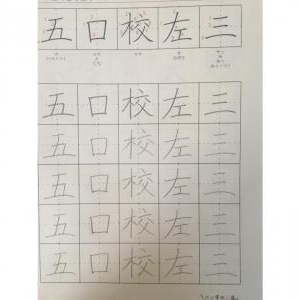 五 口 校 左 三
五 口 校 左 三
五 口 校 左 三
五 口 校 左 三
五 口 校 左 三
五 口 校 左 三